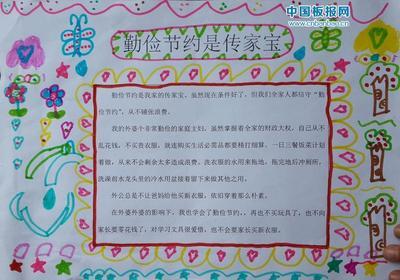 中国板报网
www.banbao.cn
勤俭节约是传家宝
勤俭节约是我家的传家宝，虽然现在条件好了，但我们全家人都信守“勤
俭节约”，从不铺张浪费。
我的外婆十分勤俭的家庭主妇，虽然掌握着全家的财政大权，自己从不
乱花钱，不买贵衣服，就连购买生活必需品都要精打细算，一日三餐饭菜计划
着做，从来不会剩余太多造成浪费。洗衣服的水用来拖地，拖完地后冲厕所，
洗澡前水龙头里的冷水用盆接着留下来做其他之用。
外公总是不让爸妈给他买新衣服，依旧穿着那么朴素。
在外婆外婆的影响下，我也学会了勤俭节约。，再也不买玩具了，也不向
家长要零花钱了，对学习文具很爱惜，也不会要家长买新衣服。